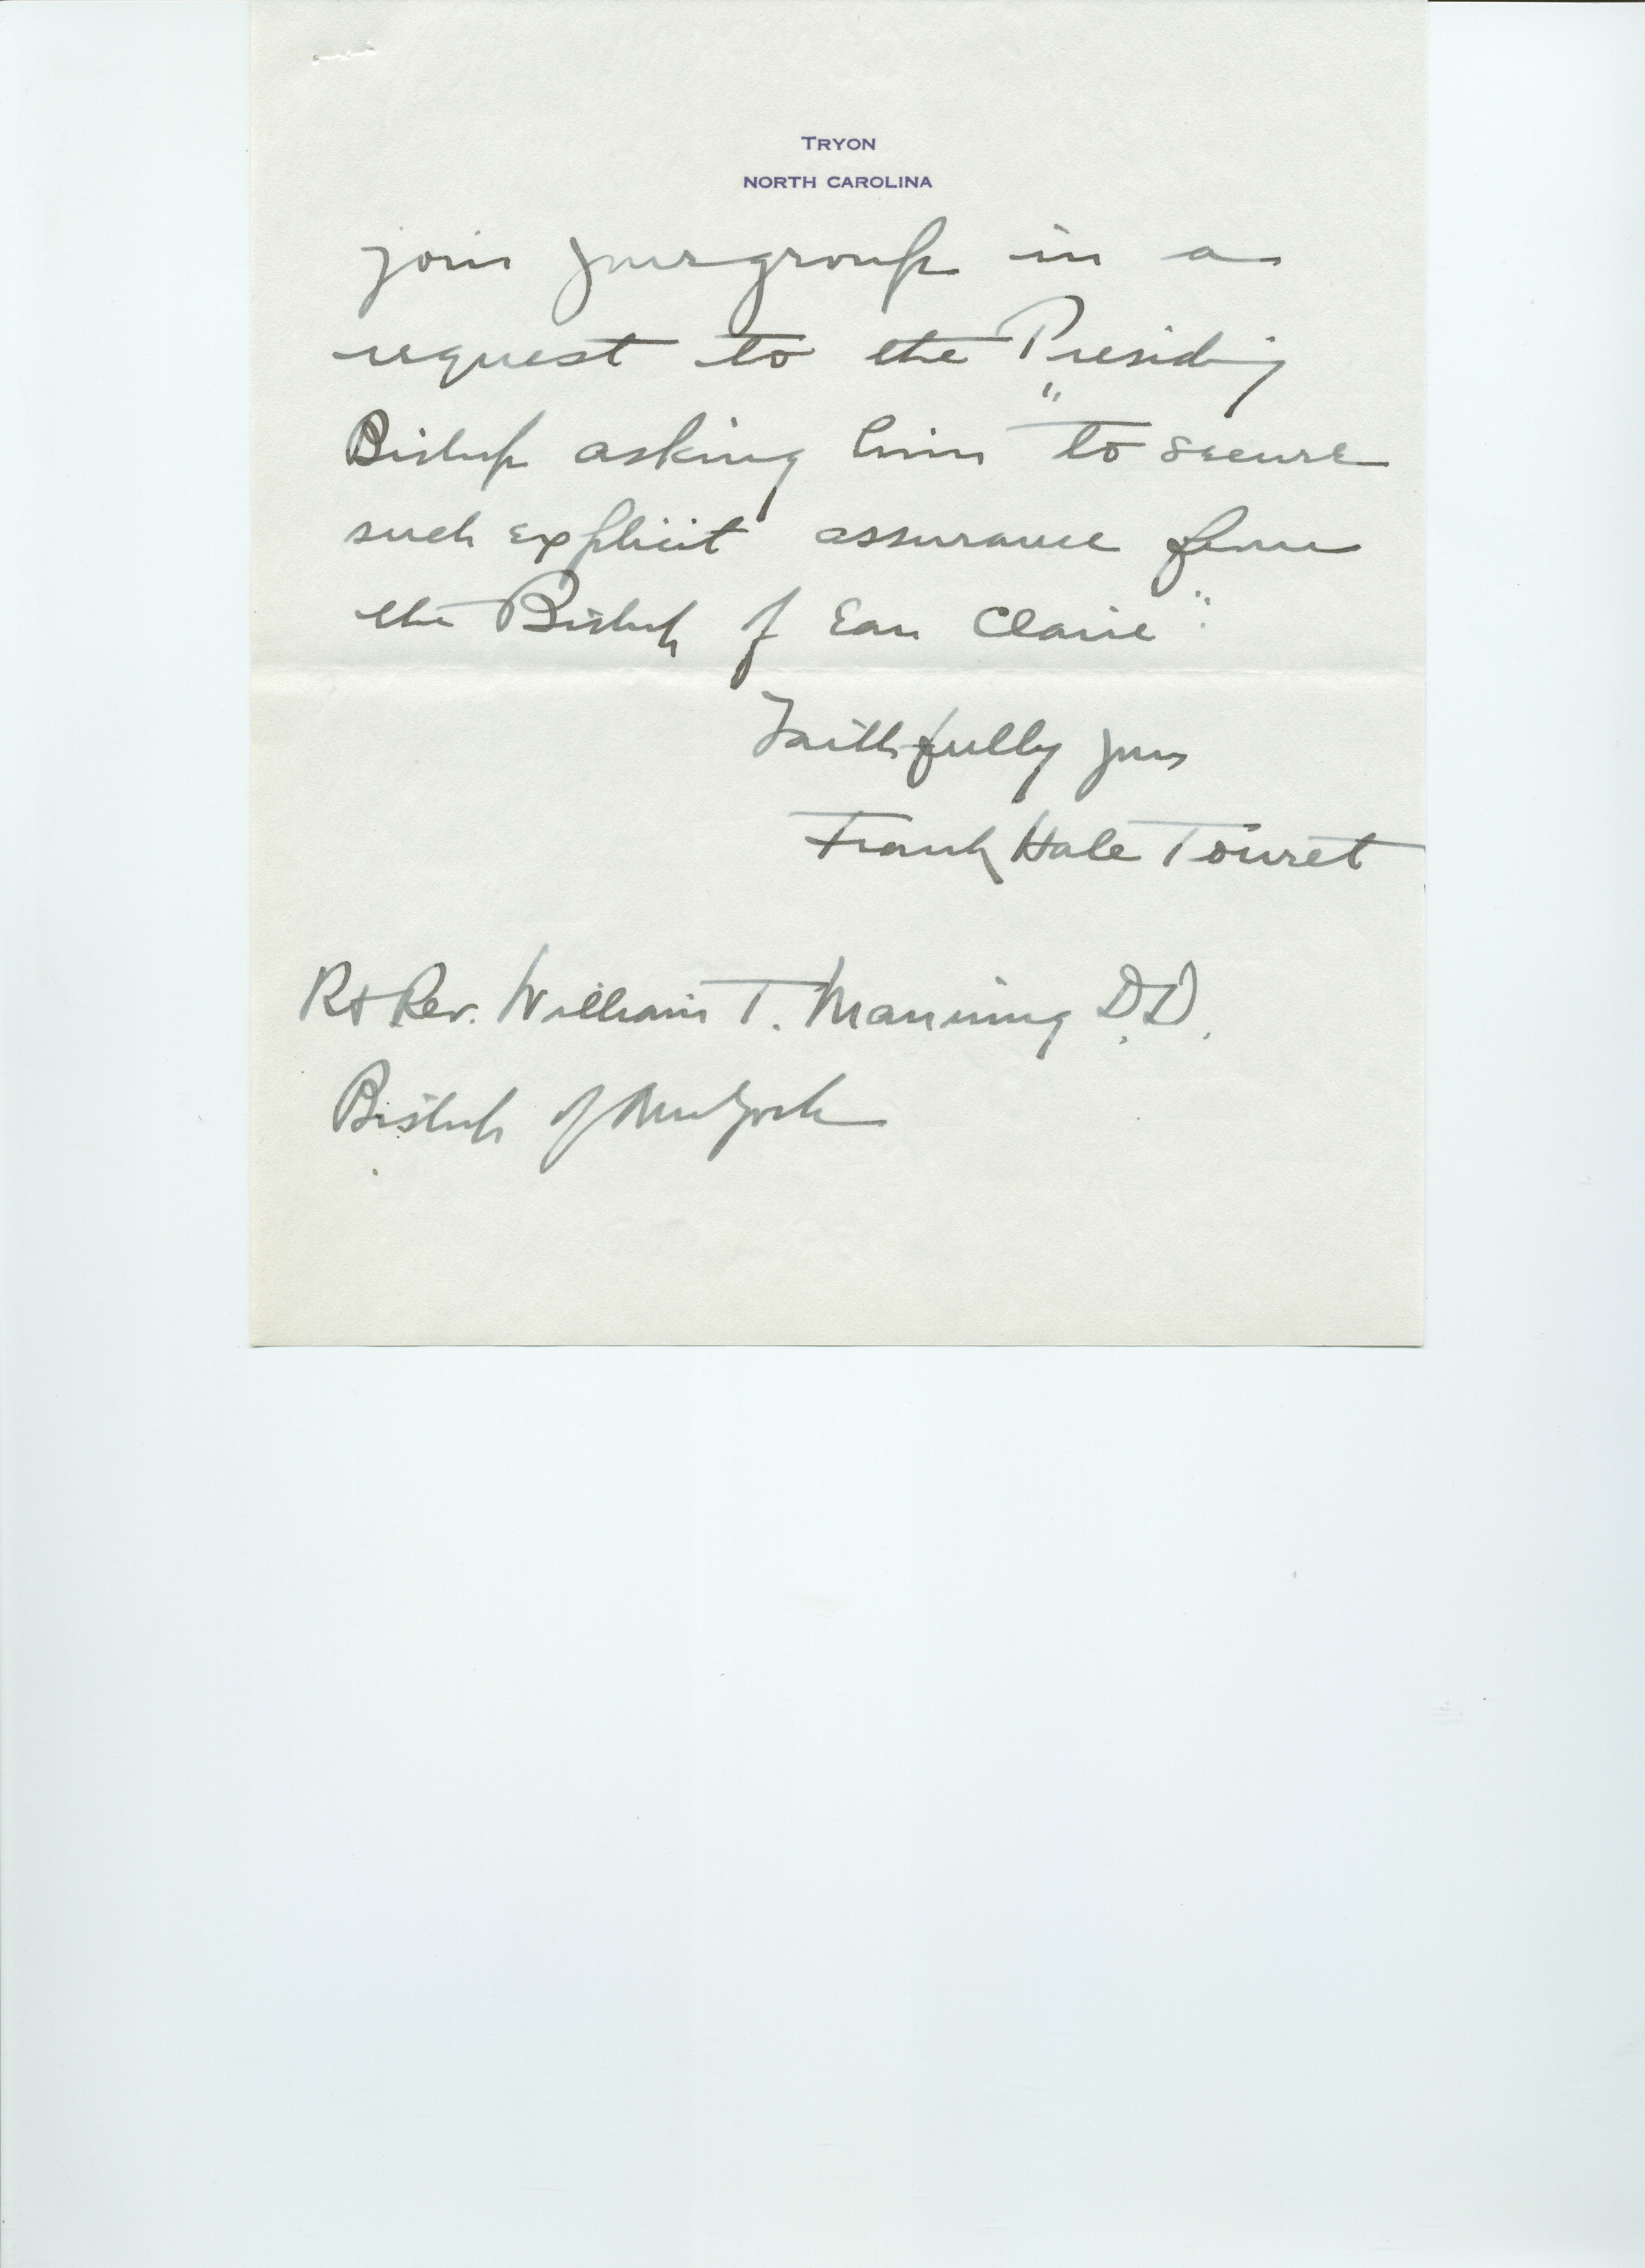 TRYON
NORTH CAROLINA
join your group in a
request to the Presiding
Bishop asking him "to secure
such explicit assurance from
the Bishop of Eau Claire".
Faithfully yours
Frank Hale Touret
Rt Rev. William T. Manning D.D.
Bishop of New York